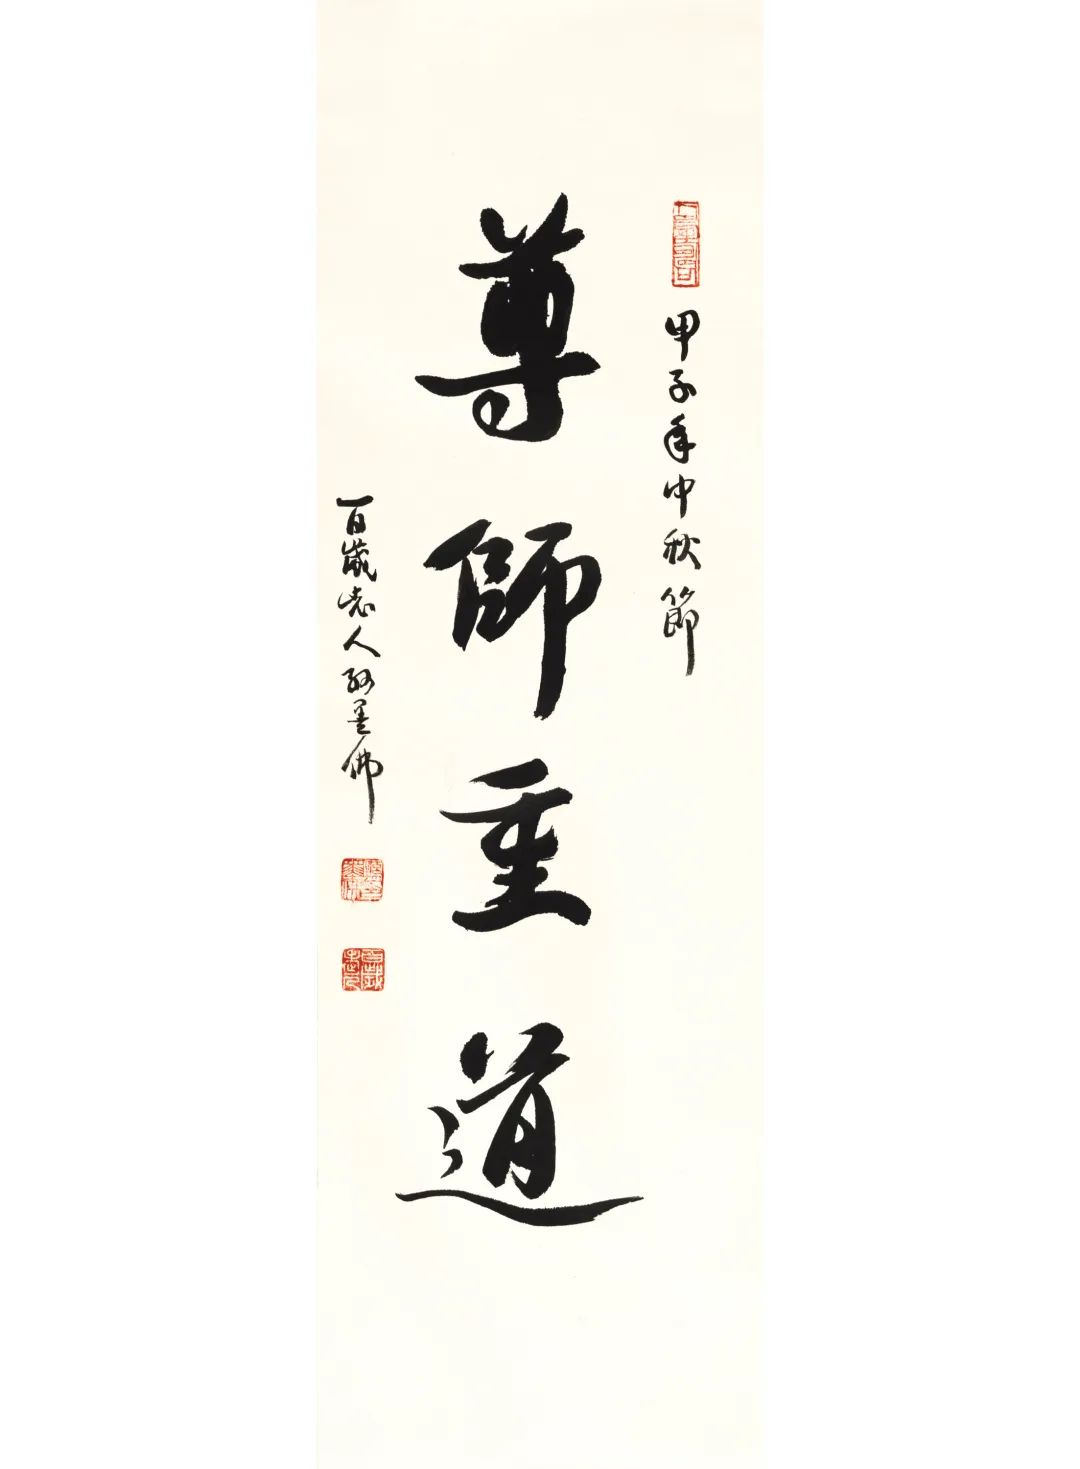 甲子年中秋節
尊師重道
百歲老人孫墨佛